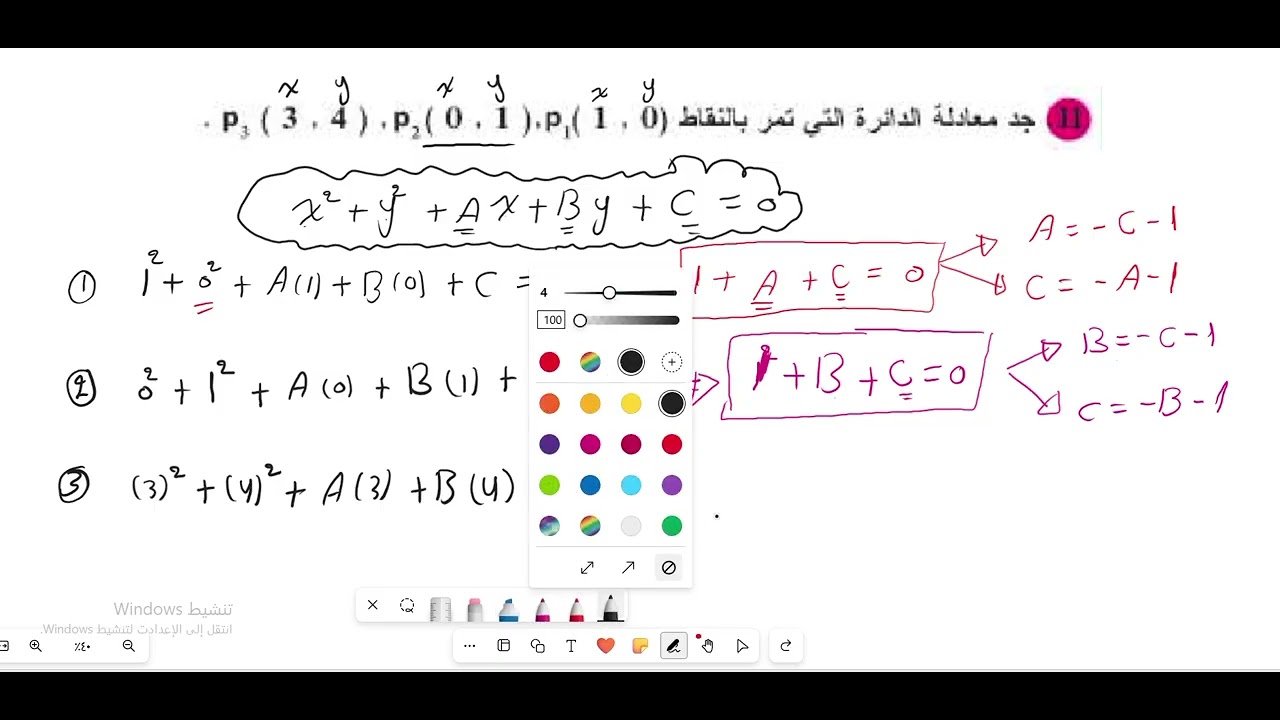 x y x y x y
11 جد معادلة الدائرة التي تمر بالنقاط p₁( 1 , 0) ، p₂( 0 , 1 ) ، p₃ ( 3 , 4 ) .
x² + y² + A x + B y + C = 0
① 1² + 0² + A(1) + B(0) + C =
1 + A + C = 0
A = -C-1
C = -A-1
② 0² + 1² + A(0) + B(1) +
1² + B + C = 0
B = -C-1
C = -B-1
③ (3)² + (4)² + A(3) + B(4)
4
100
تنشيط Windows
انتقل إلى الإعدادت لتنشيط Windows.
٪٤٠
T